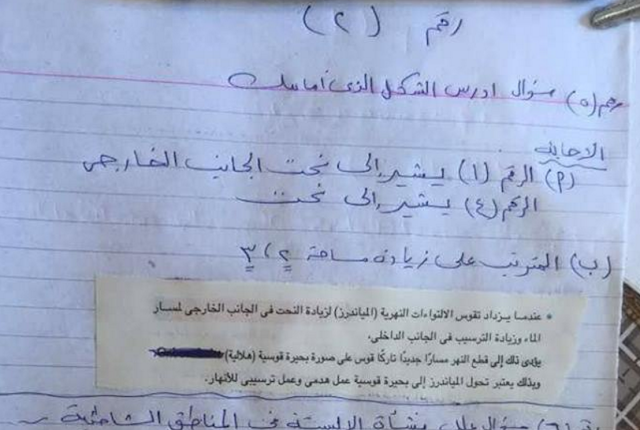 رقم (٢)
رقم (٥) سؤال ادرس الشكل الذى أمامك
الاجابة
(P) الرقم (١) يشير إلى نحت الجانب الخارجى
الرقم (٤) يشير إلى نحت
(ب) المترتب على زيادة مساحة ٢، ٣
• عندما يزداد تقوس الالتواءات النهرية (المياندرز) لزيادة النحت فى الجانب الخارجى لمسار
الماء وزيادة الترسيب فى الجانب الداخلى.
يؤدى ذلك إلى قطع النهر مسارًا جديدًا تاركًا قوس على صورة بحيرة قوسية (هلالية)
وبذلك يعتبر تحول المياندرز إلى بحيرة قوسية عمل هدمى وعمل ترسيبى للأنهار.
(٦) سؤال علل نشأة الألسنة فى المناطق الشاطئية